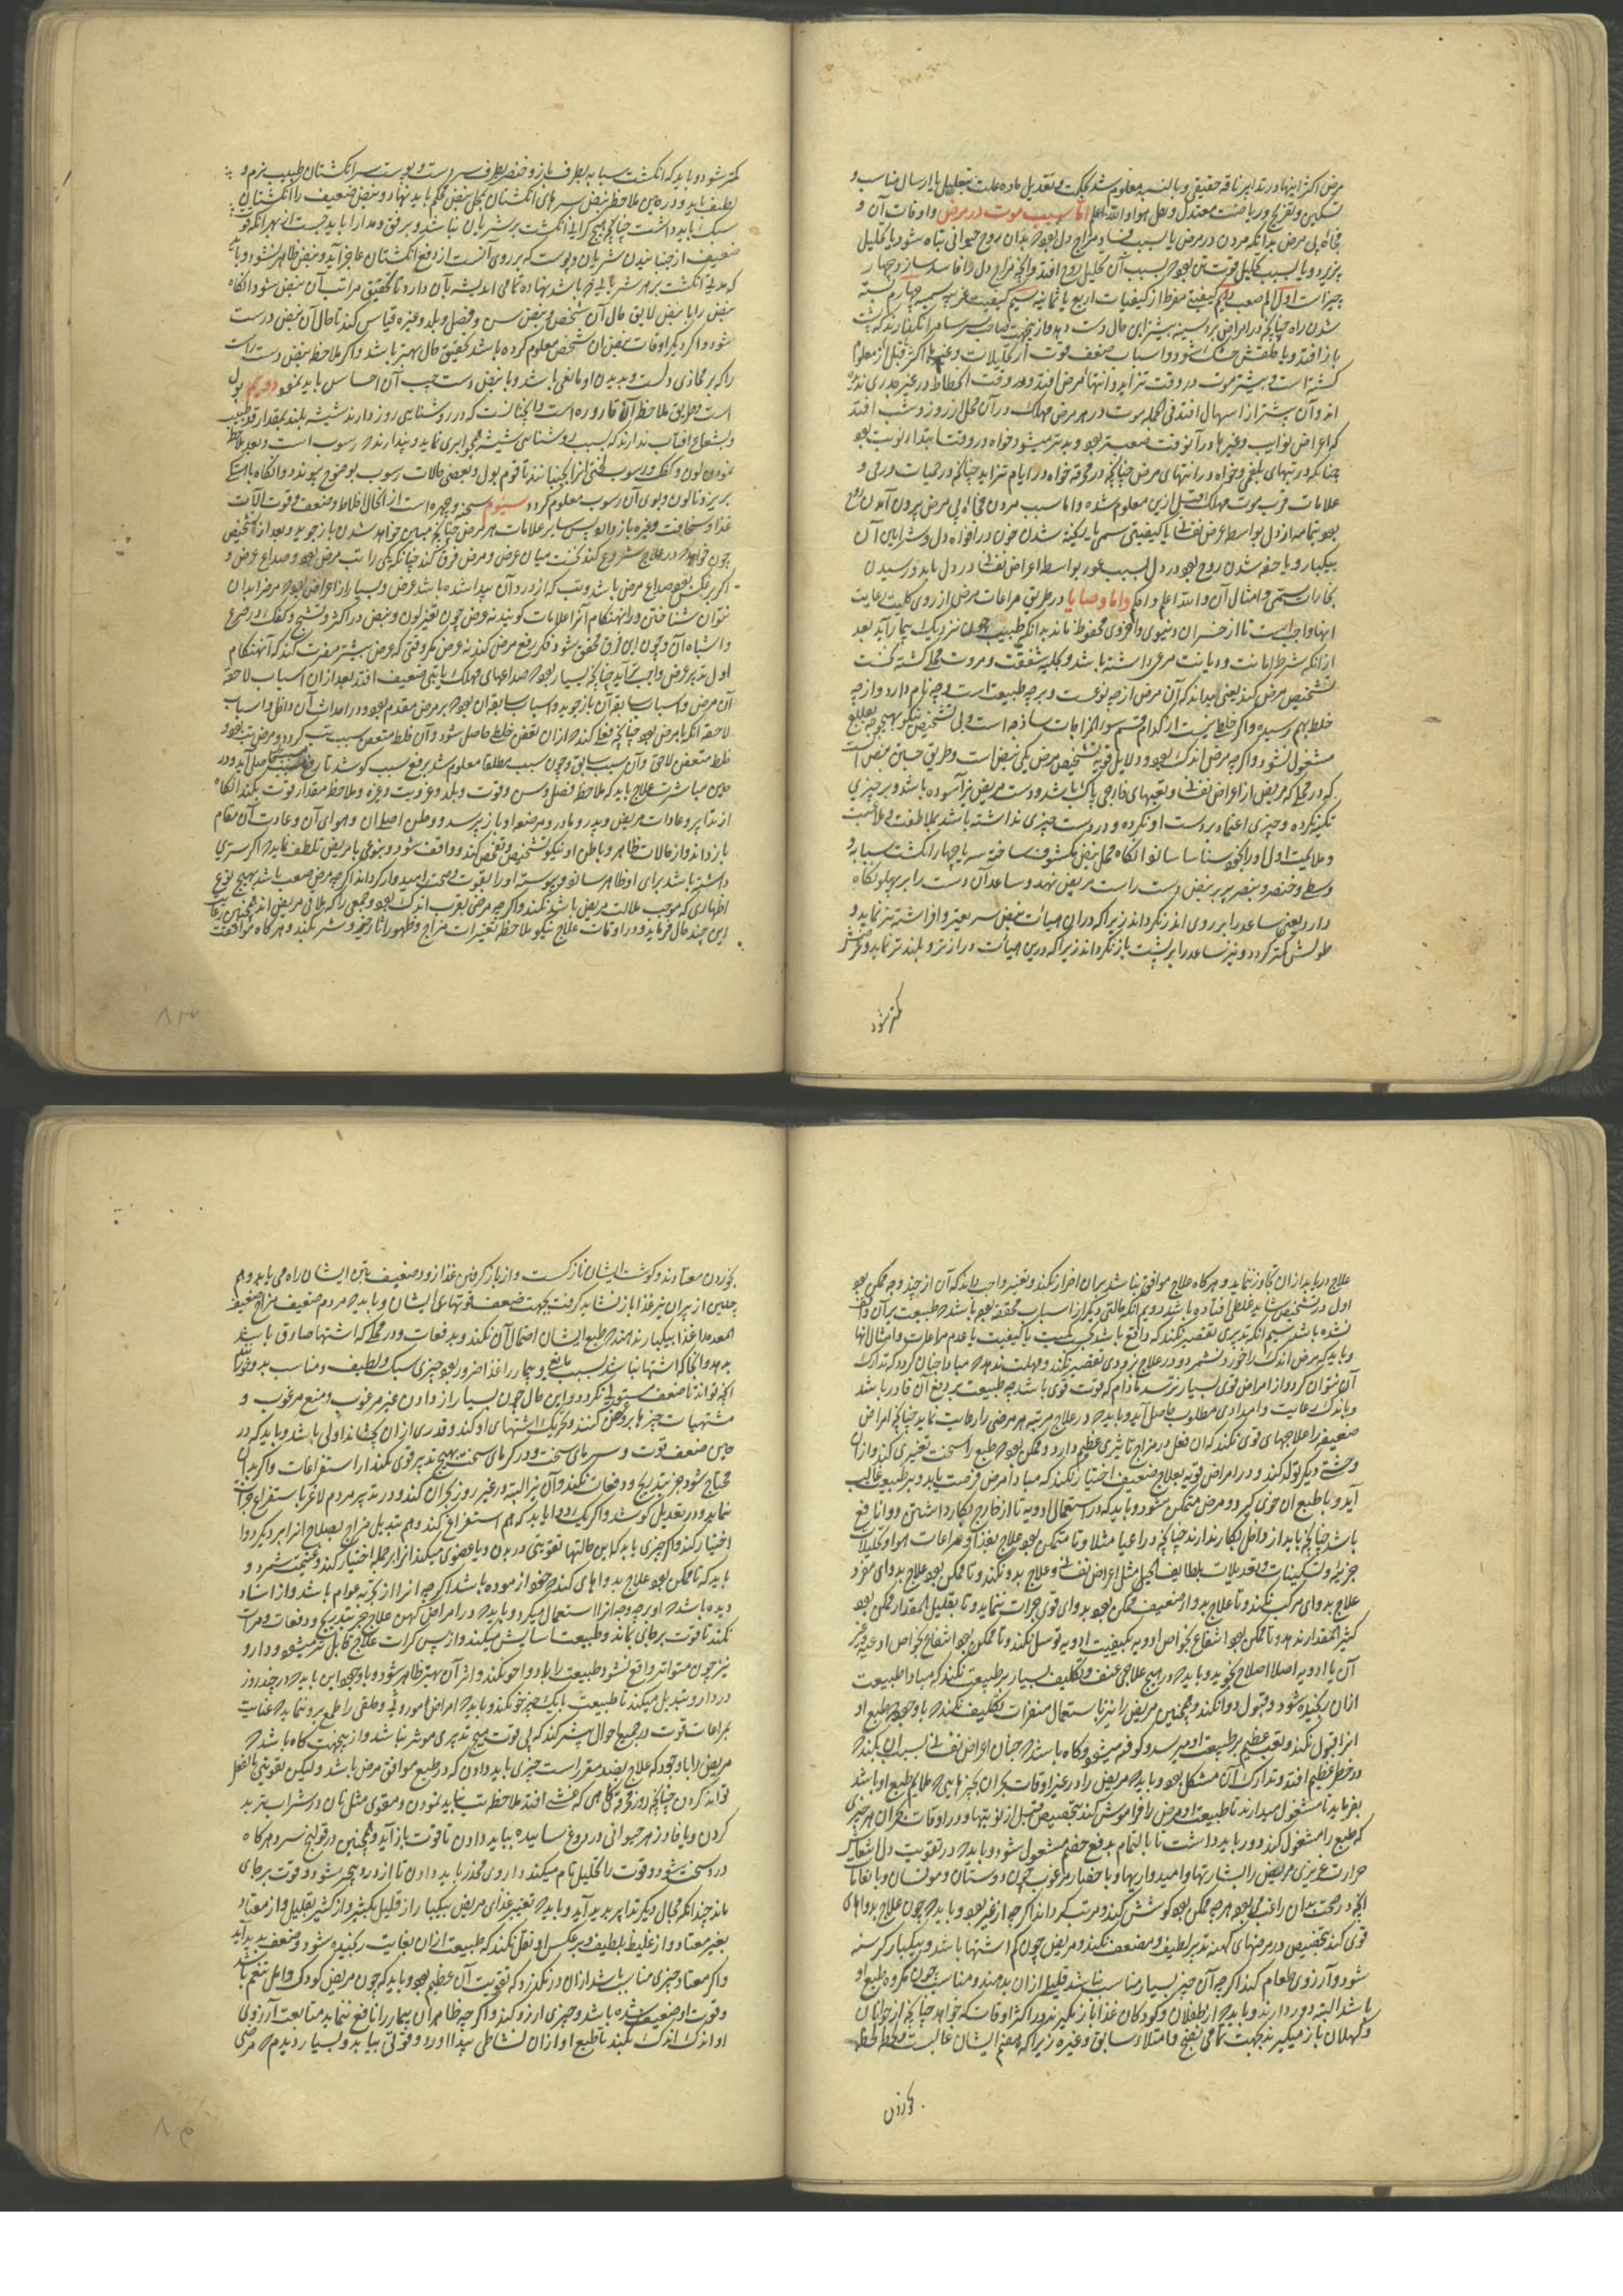 مرض اکثر اینها در تدابیر ناقه حقیقی و بالنسبه معلوم شد بحکمت و تعدیل ماده علت بتحلیل یا ارسال مناسب و
تسکین و تفریح و ریاضت معتدل و نقل هوا والله اعلم اما سبب موت در مرض و اوقات آن و
فجأة بی مرض بدانکه مردن در مرض یا بسبب فساد مزاج دل بود که بدان روح حیوانی تباه شود یا تحلیل
پذیرد و یا بسبب تحلیل قوت تن بود که بسبب آن تحلیل روح افتد و آنچه مزاج دل را فاسد سازد چهار
چیز است اول الم صعب دویم کیفیت مفرط از کیفیات اربع یا ثمانیه سیم کیفیت غریبه سمیه چهارم بسته
شدن راه چنانچه در امراض بر و سینه بیشتر این حال دست دهد و از ینجهت صاحب سرسام را نگذارند که به پشت
باز افتد و یا حلقش خشک شود و اسباب ضعف قوت از تحلیلات و غیرها اکثر قبل از معلوم
کشته است و بیشتر موت در وقت تزاید و انتهاء مرض افتد و در وقت انحطاط در غیر جدری ندیده
اند و آن بیشتر از اسهال افتد فی الجمله موت در هر مرض مهلک در آن محل از روز و شب افتد
که اعراض نوایب و غیرها در آنوقت صعبتر بود و بدتر میشود خواه در وقت ابتداء نوبت بود
چنانکه در تبهای بلغمی و خواه در انتهای مرض چنانچه در محرقه خواه در ایام تزاید چنانکه در حمیات ورمی و
علامات قرب موت مهلک قبل ازین معلوم شده و اما سبب مردن فجأة بی مرض بیرون آمدن روح
بود بتمامه از دل بواسطه عرض نفسانی یا کیفیتی سمی یا ریخته شدن خون در افواه دل و شرایین آن
بیکبار و یا خفه شدن روح بود در دل بسبب غور بواسطه اعراض نفسانی در دل یا بد و رسیدن
بخارات سمی و امثال آن والله اعلم و احکم و اما وصایا در طریق مراعات مرض از روی کلیت رعایت
اینها واجب است تا از خسران دنیوی و اخروی محفوظ ماند بدانکه طبیب چون نزدیک بیمار آید بعد
از آنکه شرط امانت و دیانت مرعی داشته باشد و بکلیه شفقت و مروت محلی کشته نخست
تشخیص مرض کند یعنی بداند که آن مرض از چه نوعست و بر چه طبیعت است و چه نام دارد و از چه
خلط بهم رسیده و اگر خلطی نیست از کدام قسم سوء المزاجات ساذجه است و بی تشخیص نیکو بهیچوجه بعلاج
مشغول نشود و اگر چه مرض اندک بود و دلایل قویه تشخیص مرض یکی نبض است و طریق جستن نبض آنست
که در محلی که مریض از اعراض نفسانی و تعبهای خارجی پاک باشد و دست مریض نیز آسوده باشد و بر چیزی
تکیه نکرده و چیزی اعتماد بر دست او نکرده و در دست چیزی نداشته باشد بملاطفت و ملاعبت
و ملایمت اول او را بخود مستأنس سازد آنگاه محل نبض مکشوف ساخته سر یا چهار انگشت سبابه و
وسطی و خنصر و بنصر بر نبض دست راست مریض نهد و ساعد آن دست را بر پهلو نگاه
دارد یعنی ساعد را بر روی اندر نگرداند زیرا که در آن هیأت نبض سریعتر و افراشته تر نماید و
طولش کمتر گردد و نیز ساعد را بر پشت باز نگرداند زیرا که درین هیأت درازتر و بلندتر نماید و عرضش
کمتر شود
کمتر شود و باید که انگشت سبابه بطرف بازو و خنصر بطرف سر دست و پوست سر انگشتان طبیب نرم و
لطیف باید و در حین ملاحظه نبض سرهای انگشتان بمحل نبض محکم باید نهاد و نبض ضعیف را انگشتان
سبک باید داشت چنانچه هیچ گرانی انگشت بر شریان نباشد و برفق و مدارا باید جست از بهر آنکه قوت
ضعیف از جنبانیدن شریان و پوست که بر روی آنست از دفع انگشتان عاجز آید و نبض ظاهر نشود و باید
که مدتی انگشت بر هر شریانی که باشد نهاده تمامی اندیشه بآن دارد تا تحقیق مراتب آن نبض شود آنگاه
نبض را با نبض لایق حال آن شخص و نبض سن و فصل و بلد و غیره قیاس کند تا حال آن نبض درست
شود و اگر در دیگر اوقات نبض آن شخص معلوم کرده باشد تحقیق حال بهتر باشد و اگر ملاحظه نبض دست راست
را که بر محاذی دلست و بدیدن او مانعی باشد و یا نبض دست چپ آن احساس باید نمود دویم بول
است و طریق ملاحظه آن قاروره است و آنچنانست که در روشنایی روز دارند شیشه بلند بمقدار قد طبیب
و بشعاع آفتاب ندارند که بسبب روشناسی شیشه چیزی نماید و پندارند که رسوب است و بعد ملاحظه
نمودن لون و کفک و رسوب لختی آنرا بجنبانند تا قوام بول و بعضی حالات رسوب بوضوح پیوندد و آنگاه باید
بریزد تا لون و بوی آن رسوب معلوم گردد سیوم سحنه و چهره است از انحال اخلاط و ضعف و قوت آلات
غذا و سخافت و غیره باز داند پس سایر علامات هر مرض چنانچه مبین خواهد شدن باز جوید و بعد از تشخیص
چون خواهد که در علاج شروع کند نخست میان عرض و مرض فرق کند چنانکه یکی را تب مرض بود و صداع عرض و
اگر بر عکس بود صداع مرض باشد و تب که از درد آن پیدا شده باشد عرض و بسیار از اعراض بود که مرض را بدان
نتوان شناختن در آنهنگام آنرا علامات گویند نه عرض چون تغیر لون و نبض در اکثر و تشنج و کفک در صرع
و اشباه آن و چون این فرق محقق شود فکر رفع مرض کند نه عرض مگر وقتی که عرض بیشتر مضرت کند که آنهنگام
اول تدبیر عرض واجب آید چنانچه بسیار بود که صداعهای مهلک یا تبی ضعیف افتد بعد از آن اسباب لاحقه
آن مرض و اسباب سابقه آن باز جوید و اسباب سابقه آن بود که بر مرض مقدم بود و در احداث آن داخل و اسباب
لاحقه آنکه با مرض بود چنانچه خلطی متعفن حاصل شود و آن خلط متعفن سبب تب گردد و مرض تب بود و
خلط متعفن لاحق و آن سبب سابق و چون سبب مطلقا معلوم شد بر رفع سبب کوشد تا رفع مسبب حاصل آید و در
حین مباشرت علاج باید که ملاحظه فصل و سن و قوت و بلد و عزوبت و غیره و ملاحظه مقدار قوت بکند آنگاه
از تدابیر و عادات مریض و پدر و مادر و مرضعه او باز پرسد و وطن اصلی آن و هوای آن و عادت آن مقام
باز داند و از حالات ظاهر و باطن او نیکو تشخیص و تفحص کند و واقف شود و بنوعی با مریض تلطف نماید که اگر سری
داشته باشد برای او ظاهر سازد و پیوسته او را بقوت و صحت امیدوار گرداند اگر چه مرض صعب باشد بهیچ نوع
اظهاری که موجب ملالت مریض باشد نکند و اگر چه مرض اندک بود و جمعی را که ملاقی مریض اند همچنین رعایت
این چند حال فرماید و در اوقات علاج نیکو ملاحظه تغیرات مزاج و ظهور آثار خیر و شر بکند و هر گاه موافقت
۸۳
علاج دریابد از آن تجاوز ننماید و هر گاه علاج موافق نباشد بر آن اصرار نکند و تغییر واجب داند که آن از چند وجه ممکن بود
اول در تشخیص شاید غلطی افتاده باشد دویم آنکه حالتی دیگر از اسباب مخففه بود باشد که طبیعت بر آن واقف
نشده باشد سیم آنکه تدبیری تقصیر نکند که دافع باشد بکمیت یا کیفیت یا عدم مراعات و امثال آنها
و باید که مرض اندک را خورد نشمرد و در علاج بزودی تقصیر نکند و مهلت ندهد که مبادا چنان گردد که تدارک
آن نتوان کرد و از امراض قوی بسیار نترسد مادام که قوت قوی باشد چه طبیعت بر دفع آن قادر باشد
و باندک رعایت و امدادی مطلوب حاصل آید و باید که در علاج مرتبه هر مرضی را رعایت نماید چنانچه امراض
ضعیف را علاجهای قوی نکند که آن فعل در مزاج تاثیری عظیم دارد و ممکن بود که طبع را سخت تغییری کند و از آن
وحشتی دیگر تولد کند و در امراض قویه بعلاج ضعیف اختیار نکند که مبادا مرض فرصت یابد و بر طبیعت غالب
آید و با طبع آن خوی گیرد و مرض متمکن شود و باید که در استعمال ادویه تا از خارج بکار داشتن دوا نافع
باشد چنانچه باید از داخل بکار ندارند چنانچه در اعیا مثلا و تا ممکن بود علاج بغذا و مراعات هوا و تحلیلات
جزئیه و تسکینات و تعدیلات بلطایف الحیل مثل اعراض نفسانی و علاج بدو نکند و تا ممکن بود علاج بدوای مفرد
علاج بدوای مرکب نکند و تا علاج بدواء ضعیف ممکن بود بدوای قوی جرات ننماید و تا بقلیل المقدار ممکن بود
کثیر المقدار ندهد و تا ممکن بود انتفاع بخواص ادویه بکیفیت ادویه توسل نکند و تا ممکن بود انتفاع بخواص ادعیه و غیر
آن با ادویه اصلا اصلاح نجوید و باید که در هیچ علاجی عنف و تکلیف بسیار بر طبیعت نکند که مبادا طبیعت
ازان رنجیده شود و قبول دوا نکند و همچنین مریض را نیز باستعمال منفرات تکلیف نکند که باوجود که طبع او
آنرا قبول نکند و تعب عظیم بر طبیعت او میرسد و کوفته میشود و گاه باشد که چنان اعراض نفسانی بسبب آن بکند که
در خطر عظیم افتد و تدارک آن مشکل بود و باید که مریض را در غیر اوقات بحران بچیزهایی که ملایم طبع او باشد
بفرماید تا مشغول میدارند تا طبیعت او مرض را فراموش کند بتخصیص قبل از نوبتها و در اوقات بحران هر چیزی
که طبع را مشغول کند دور باید داشت تا بالتمام بدفع خصم مشغول شود و باید که در تقویت دل و انتعاش
حرارت غریزی مریض را بشارتها و امیدواریها و باحضار مرغوب چون دوستان و مونسان و بانعامات
آنچه در صحت بدان راغب می بود هر چه ممکن بود کوشش کند و مرتب گرداند اگر چه از غیر بود و باید که چون علاج بدواهای
قوی کند بتخصیص در مرضهای کهنه تدبیر لطیف و مضعف نکند و مریض چون کم اشتها باشد و بیکبار گرسنه
شود و آرزوی طعام کند اگر چه آن چیز بسیار مناسب نباشد قلیلی از آن بدهند و مناسب چون مکروه طبع او
باشد البته دور دارند و باید که از طفلان و کودکان غذا باز نگیرند در اکثر اوقات که خواهند چنانچه از جوانان
و کهلان باز میگیرند بجهت تمامی نضج و امتلاء سابق و غیره زیرا که هضم ایشان غالبست و لحظه لحظه
بخوردن
بخوردن معتادند و گوشت ایشان نازکست و از باز گرفتن غذا زود ضعیف بتن ایشان راه می یابد و هم
چنین از پیران نیز غذا باز نشاید گرفت بجهت ضعف قوتهای ایشان و باید که مردم ضعیف مزاج ضعیف
المعده را غذا بیکبار ندهند که طبع ایشان احتمال آن نکند و بدفعات و در محلی که اشتها صادق باشد
بدهد و آنجا که اشتها نباشد بسبب مانعی و بیمار را غذا ضرور بود چیزی سبک و لطیف و مناسب بدو خورانند
آنچه تواند تا ضعف مستولی نگردد و این حال چون بسیار از دادن غیر مرغوب و منع مرغوب و
مشتهیات چیزها بر و عرض کنند و تحریک اشتهای او کند و قدری از ان بچشاند اولی باشد و باید که در
حین ضعف قوت و سرمای سخت و در گرمای سخت هیچ تدبیر قوی نکند از استفراغات و اگر بدان
محتاج شود جز بتدریج و دفعات نکند و آن نیز البته در غیر روز بحران کند و در تدبیر مردم لاغر باستفراغ جرات
ننماید و در تعدیل کوشد و اگر یک دوا یابد که هم استفراغ کند و هم تبدیل مزاج بصلاح آنرا بر دیگر دوا
اختیار کند و اگر چیزی یابد که باین حالتها تقویتی در بدن و یا عضوی میکند آنرا بر جمله اختیار کند و غنیمت شمرد و
باید که تا ممکن بود علاج بدواهای کند که خود آزموده باشد اگر چه آنرا از تجربه عوام باشد و از استاد
دیده باشد که او بر چه وجه آنرا استعمال میکرد و باید که در امراض کهن علاج جز بتدریج و دفعات و مرات
نکند تا قوت بر جای بماند و طبیعت آسایش میکند و از پس کرات علاج قابل تر میشود و دارو
نیز چون متواتر واقع نشود طبیعت را با دوا خو نکند و اثر آن بهتر ظاهر شود و با وجود این باید که در چند روز
در دارو تبدیل میکند تا طبیعت با یک چیز خو نکند و باید که امراض موروثی و خلقی را طمع برء ننماید که عنایت
بمراعات قوت در جمیع احوال بیشتر کند که بی قوت هیچ تدبیری موثر نباشد و از ینجهت گاه باشد که
مریض را با وجود که علاج بضد مقرر است چیزی باید دادن که در طبع موافق مرض باشد و لیکن تقویتی بالفعل
تواند کردن چنانچه در محرقه گاهی که غشی افتد ملاحظه تب نباید نمودن و مقوی مثل نان در شراب ترید
کردن و یا فادزهر حیوانی در دوغ ساییده بباید دادن تا قوت باز آید و همچنین در قولنج سرد هر گاه
درد سخت شود و قوت را تحلیل تام میکند داروی مخدر باید دادن تا از درد بیخبر شود و قوت بر جای
ماند چندانکه مجال دیگر تدابیر پدید آید و باید که تغییر غذای مریض بیکبار از قلیل بکثیر و از کثیر بقلیل و از معتاد
بغیر معتاد و از غلیظ بلطیف و بر عکس او نقل نکند که طبیعت ازان بغایت رنجیده شود و ضعف پدید آید
و اگر معتاد چیزی مناسب باشد ازان در نگذرد که تقویت آن عظیم بود و باید که چون مریض کودک و اهل تنعم باشد
و قوت او ضعیف شده باشد و چیزی آرزو کند و اگر چه ظاهر آن بیمار را نافع ننماید متابعت آرزوی
او اندک اندک بکند تا طبع او از ان نشاطی پیدا آورد و قوتی بیابد و بسیار دیدم که مرضی
۸۴